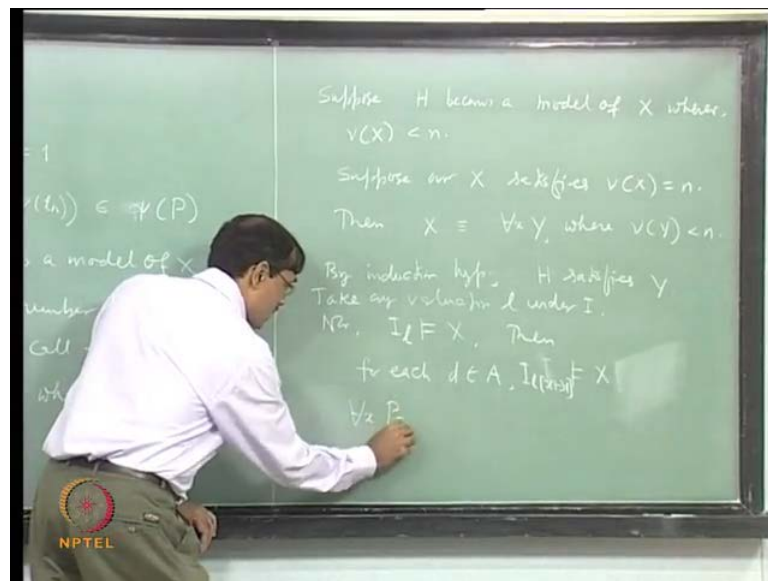 = 1
(tn)) ∈ ψ(P)
a model of X
number
Call
wh
Suppose H becomes a model of X where,
v(X) < n.
Suppose our X satisfies v(X) = n.
Then X ≡ ∀x Y, where v(Y) < n.
By induction hyp, H satisfies Y
Take any valuation l under I.
Now, I_l ⊨ X, Then
for each d ∈ A, ⊨ X
∀x P
NPTEL